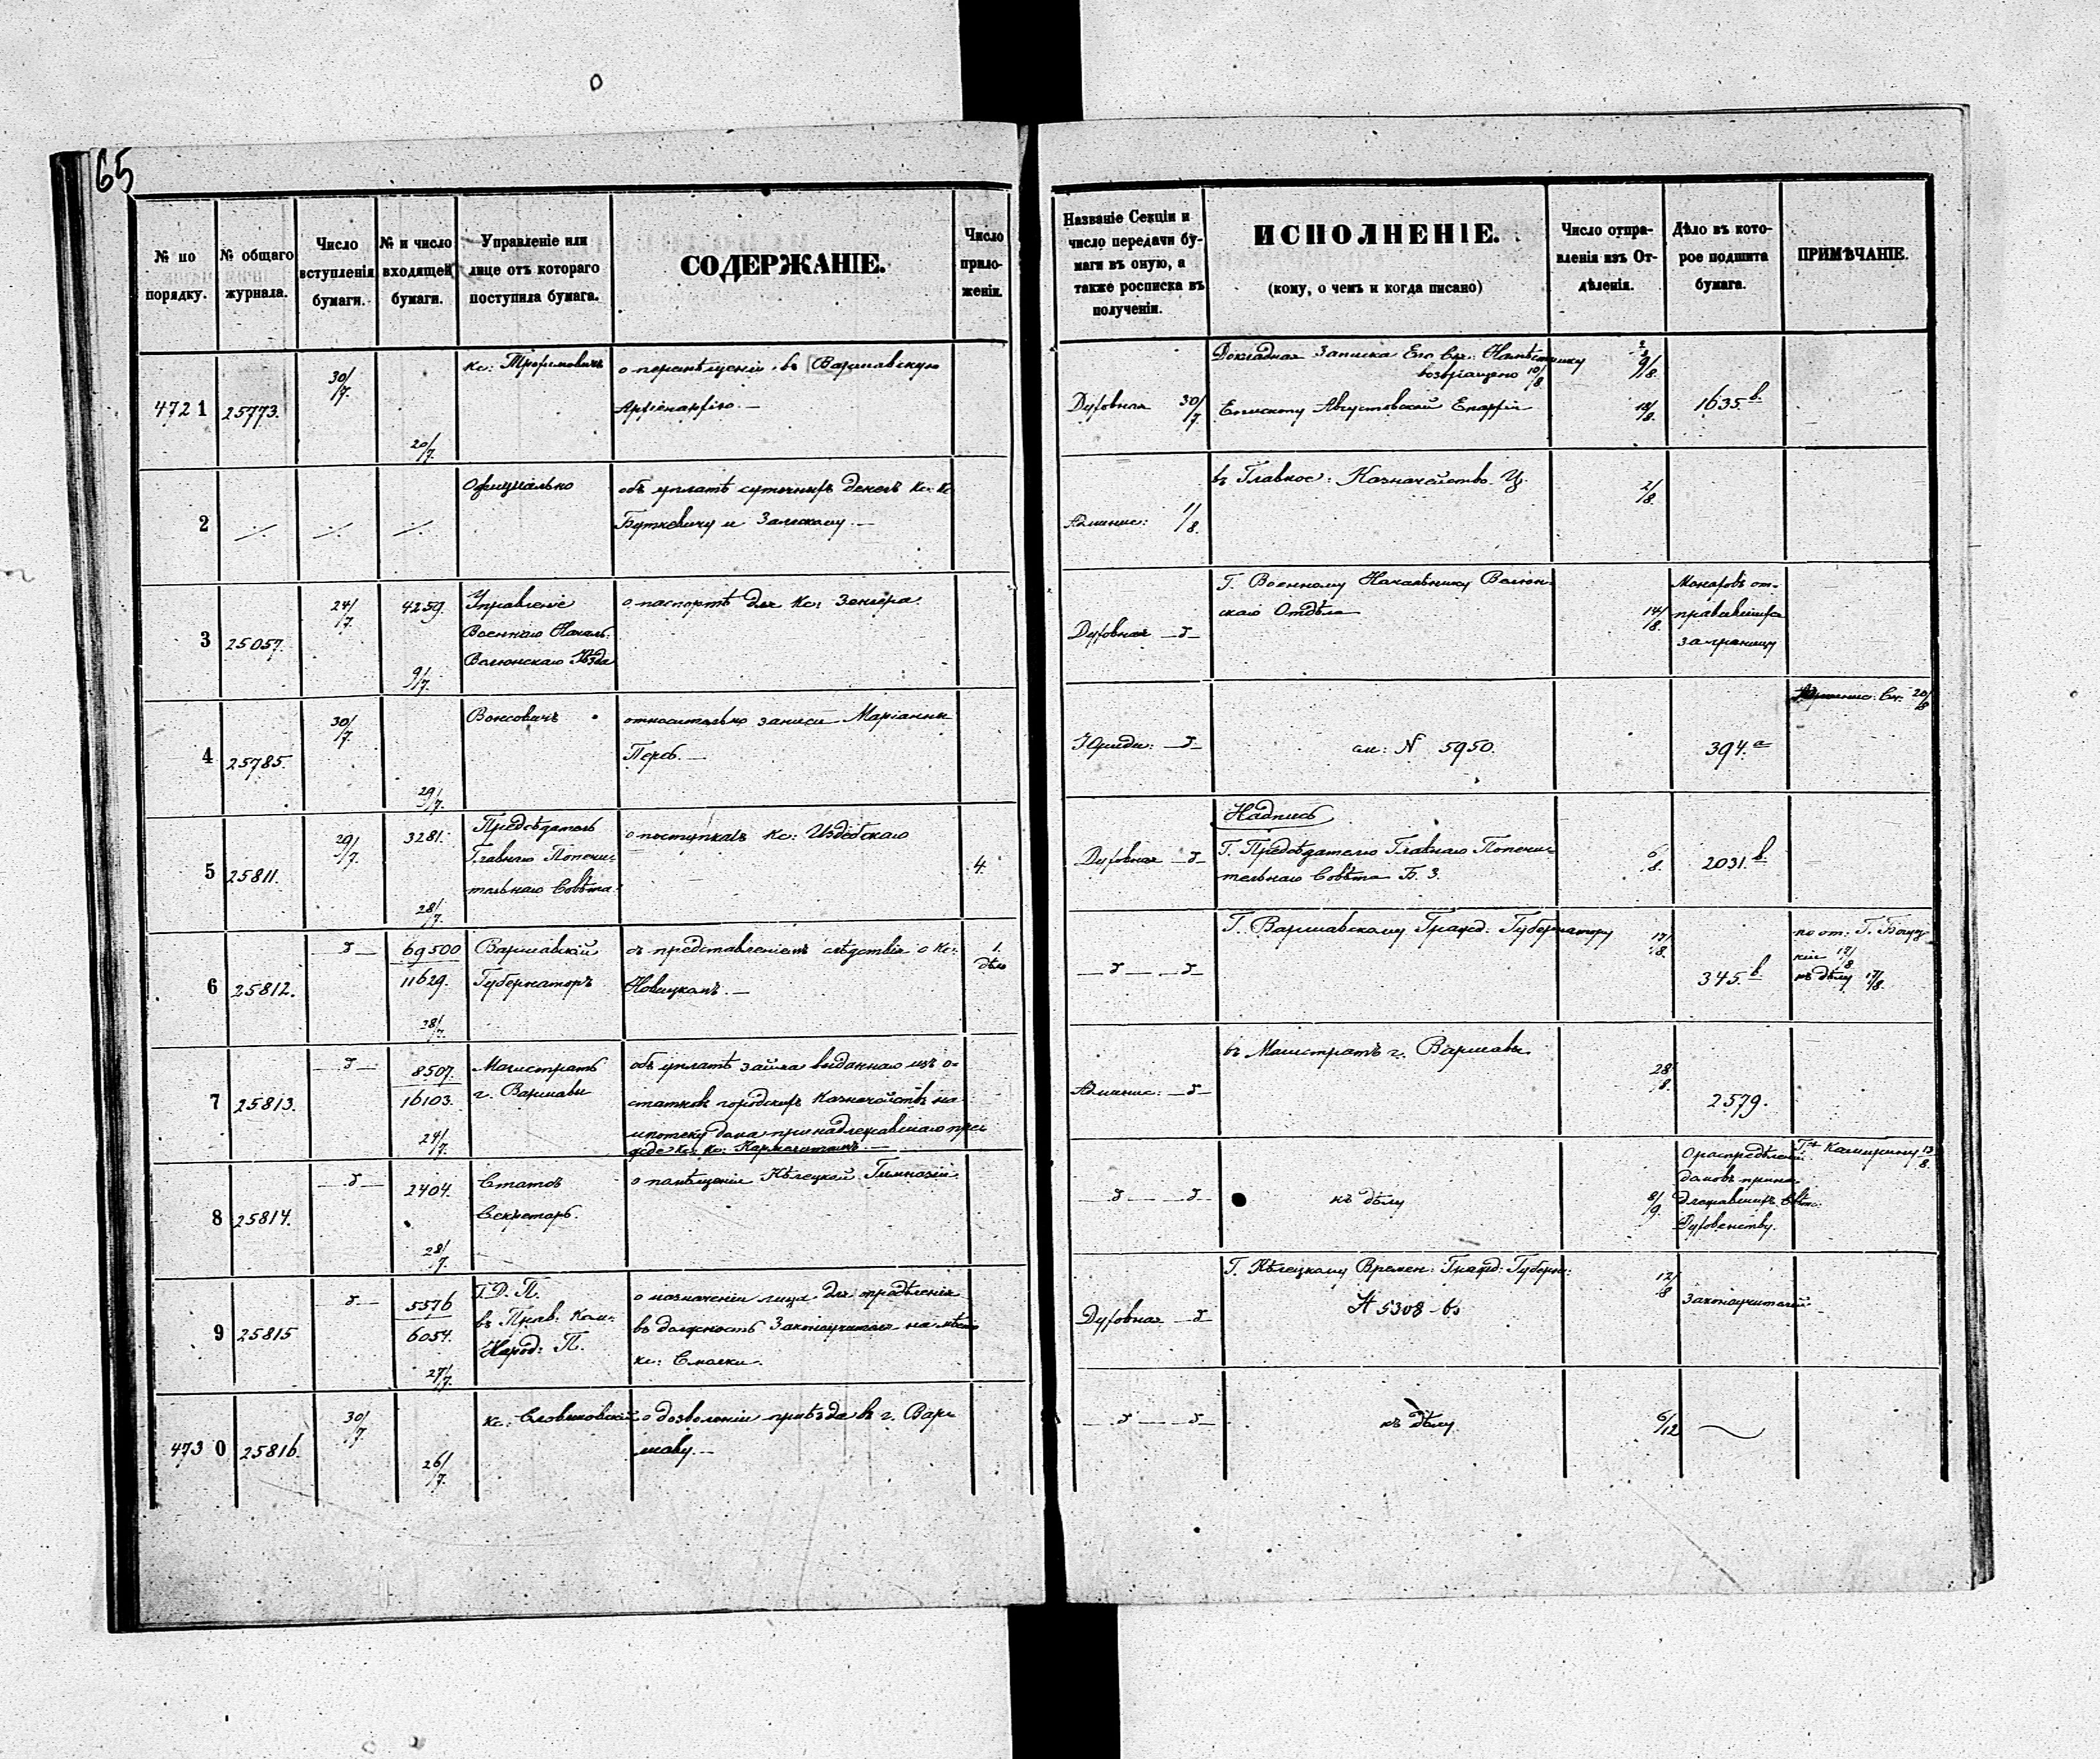 65
№ по порядку.
№ общаго журнала.
Число вступленія бумаги.
№ и число входящей бумаги.
Управленіе или лице отъ котораго поступила бумага.
СОДЕРЖАНІЕ.
Число приложеніи.
Названіе Секціи и число передачи бумаги въ оную, а также росписка въ полученіи.
ИСПОЛНЕНІЕ.
(кому, о чемъ и когда писано)
Число отправленія изъ Отдѣленія.
Дѣло въ которое подшита бумага.
ПРИМѢЧАНІЕ.
4721
25773.
30/7.
20/7.
Кс: Трофимовичъ
о перемѣщеніи въ Варшавскую
Архіепархію. —
Духовная 30/7.
Докладная Записка Его Вы: Намѣстнику
возвращено 10/8.
Епископу Августовской Епархіи
9/8.
18/8.
1635.в.
2
Официально
объ уплатѣ суточныхъ денегъ Кс: Кс
Буткевичу и Залескому. —
Админис: 1/8.
въ Главное: Казначейство Ц.
2/8.
3
25057.
24/7.
4259.
9/7.
Управленіе
Военнаго Началь:
Велюнскаго Уѣзда
о паспортѣ для Кс: Зенгера.
Духовная
Г. Военному Начальнику Велюн:
скаго Отдѣла
14/8.
от-
правившихся
заграницу
4
25785.
30/7.
29/7.
Вонсовичъ
относительно записи Маріанны
Перб. —
Юриди:
см: N 5950.
394.а
20/8
5
25811.
29/7.
3281.
28/7.
Предсѣдатель
Главнаго Попечи-
тельнаго Совѣта.
о поступкахъ Кс: Издебскаго
4.
Духовная
Надпись
Г. Предсѣдателю Главнаго Попечи-
тельнаго Совѣта Б. З.
6/8.
2031.в
6
25812.
69500
11629.
28/7.
Варшавскій
Губернаторъ
съ представленіемъ слѣдствія о Кс:
Новицкомъ. —
1.
дѣло
Г. Варшавскому Гражд: Губернатору
17/8.
345.в
по от: Г.
къ дѣлу 17/8.
7
25813.
8507.
16103.
24/7.
Магистратъ
г. Варшавы
объ уплатѣ займа выданнаго изъ о-
статковъ городскихъ Казначействъ на
ипотеку дома принадлежавшаго преж
де Кс: Кс: Кармелитамъ. —
Админис:
въ Магистратъ г. Варшавы
28/8.
2579.
8
25814.
2404.
28/7.
Статсъ
Секретарь.
о помѣщеніи Кѣлецкой Гимназіи
къ дѣлу
8/9.
О распредѣленіи
домовъ прина
длежавшихъ
Духовенству.
13/8.
9
25815
5576
6054.
27/7.
Г. Д. П.
въ Прав: Ком:
Народ: П.
о назначеніи лица для опредѣленія
въ должность Законоучителя на мѣсто
кс: Смолки.
Духовная
Г. Кѣлецкому Времен: Гражд: Губерн:
№ 5308
12/8
Законоучителей
4730
25816.
30/7.
26/7.
Кс: Словиковскій
о дозволеніи пріѣзда въ г. Вар-
шаву. —
къ дѣлу.
6/12